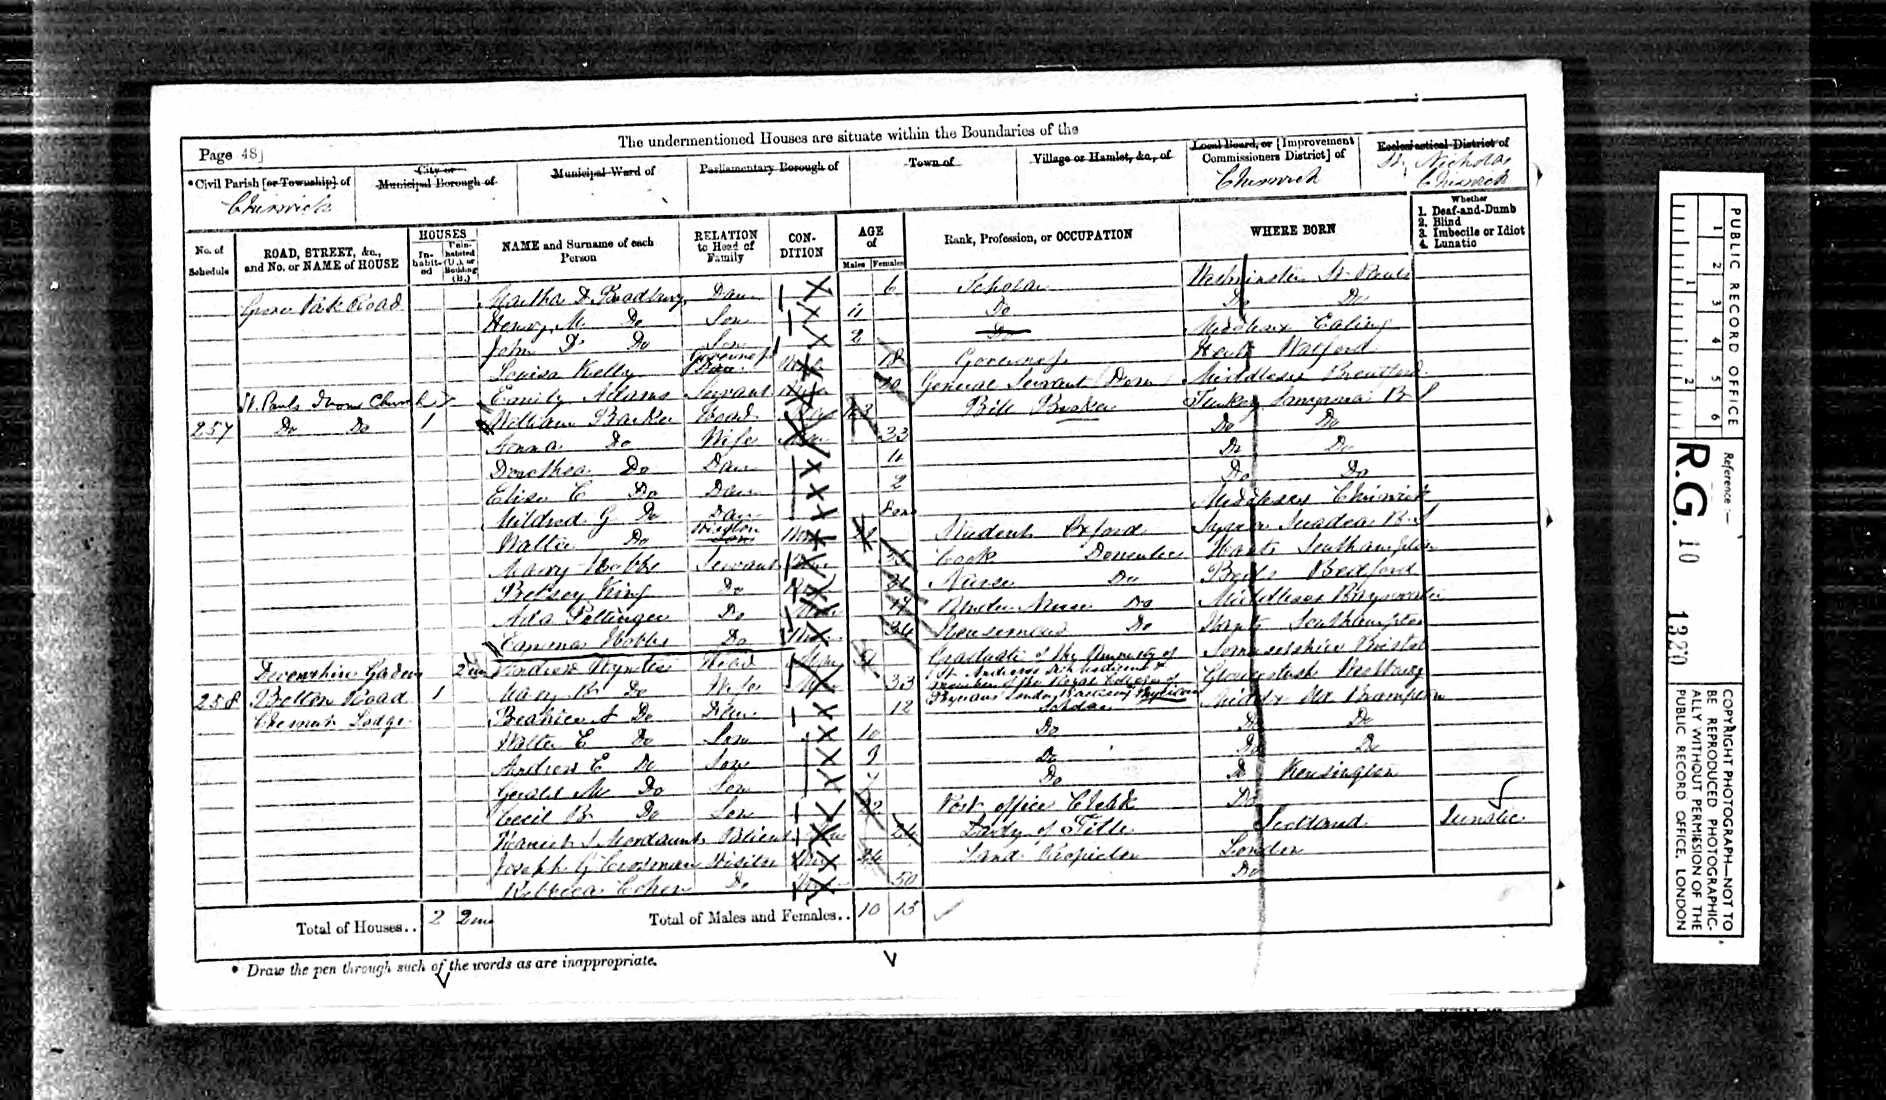 The undermentioned Houses are situate within the Boundaries of the
Page 48]
*Civil Parish [or Township] of
Chiswick
City or
Municipal Borough of
Municipal Ward of
Parliamentary Borough of
Town of
Village or Hamlet, &c., of
Local Board, or [Improvement
Commissioners District] of
Chiswick
Ecclesiastical District of
St. Nicholas
Chiswick
No. of
Schedule
ROAD, STREET, &c.,
and No. or NAME of HOUSE
HOUSES
In-
habit-
ed
Unin-
habited
(U.), or
Building
(B.)
NAME and Surname of each
Person
RELATION
to Head of
Family
CON-
DITION
AGE
of
Males
Females
Rank, Profession, or OCCUPATION
WHERE BORN
Whether
1. Deaf-and-Dumb
2. Blind
3. Imbecile or Idiot
4. Lunatic
Grove Park Road Martha D Bradbury Daur 6 Scholar Westminster St Pauls
Henry M Do Son 4 Do Do Do
John D Do Son 2 Do Middlesex Ealing
Louisa Kelly Governess 18 Governess Herts Watford
Emily Adams Servant General Servant Dom Middlesex Brentford
St. Pauls Iron Church
257 Do Do 1 William Barker Head Broker Turkey
Do Wife 33 Do Do
Dorothea Do Daur 4 Do Do
Elise C Do Daur 2 Do Do
Mildred G Do Daur Middlesex Chiswick
Walter Do Student Oxford
Mary Hobbs Servant Cook Domestic Hants Southampton
Betsey King Do Nurse Do Beds Bedford
Ada Pottinger Do Under Nurse Do Middlesex Bayswater
Hobbs Do Housemaid Do Hants Southampton
Devonshire Gardens Andrew Wynter Head Graduate of the University of Somersetshire Bristol
258 Bolton Road 1 Mary B Do Wife 33 Gloucestersh Westbury
Chesnut Lodge Beatrice A Do Daur 12 Scholar Middx Old Brompton
Walter C Do Son 10 Do Do Do
Andrew E Do Son 9 Do Do Do
Gerald M Do Son 7 Do Do Kensington
Cecil B Do Son 22 Post office Clerk Do
Harriet S Mordaunt Patient Lady of Title Scotland Lunatic
Joseph G Crossman Visitor Land London
Rebecca Cohen Do 50 Do
Total of Houses.. 2
Total of Males and Females.. 10 15
* Draw the pen through such of the words as are inappropriate.
PUBLIC RECORD OFFICE
1 2 3 4 5 6
1 2
Reference:—
R.G. 10
1320
COPYRIGHT PHOTOGRAPH—NOT TO
BE REPRODUCED PHOTOGRAPHIC-
ALLY WITHOUT PERMISSION OF THE
PUBLIC RECORD OFFICE, LONDON